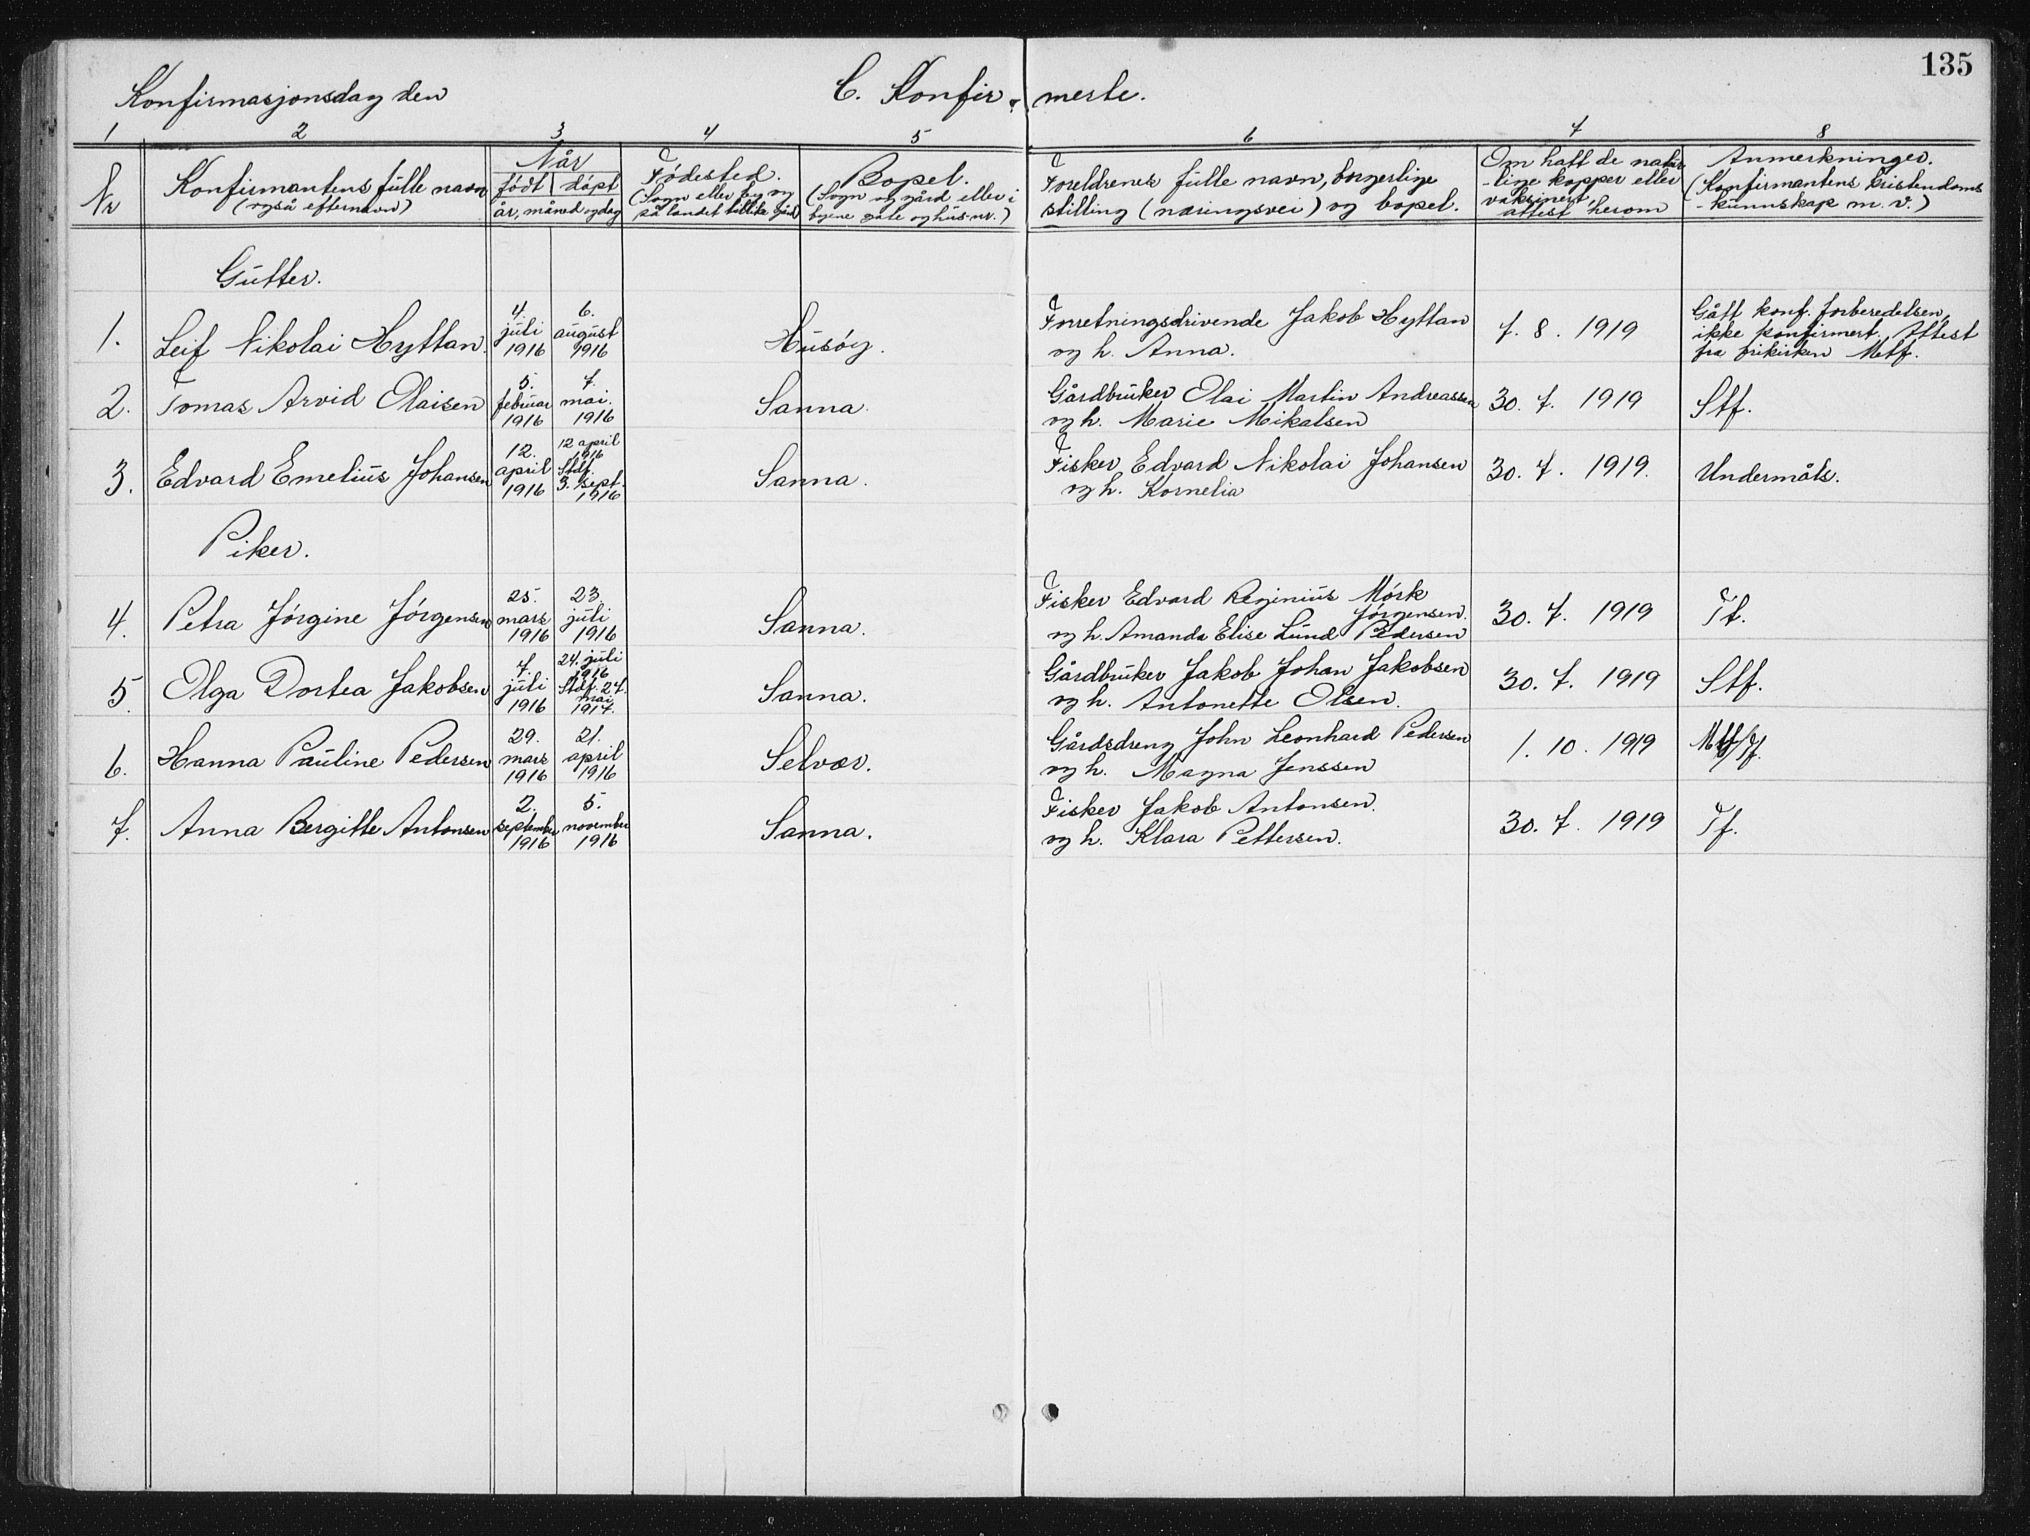 135
Konfirmasjonsdag den C. Konfirmerte.
1 2 3 4 5 6 7 8
Nr
Konfirmantens fulle navn
(også efternavn)
Når
født døpt
år, måned og dag
Fødested.
(Sogn eller by og
på landet tillike gård)
Bopel.
(Sogn og gård eller i
byene gate og hus-nr.)
Foreldrenes fulle navn, borgerlige
stilling (næringsvei) og bopel.
Om hatt de natur-
-lige kopper eller
vaksinert,
attest herom
Anmerkninger.
(Konfirmantens kristendoms
-kunnskap m. v.)
Gutter.
1. Leif Nikolai Hyttan. 4. juli 1916 6. august 1916 Husøy. Forretningsdrivende Jakob Hyttan
og h. Anna. 7. 8. 1919 Gått konf. forberedelsen,
ikke konfirmert. Attest
fra frikirken Mtf.
2. Tomas Arvid Olaisen 5. februar 1916 7. mai. 1916 Sanna. Gårdbruker Olai Martin Andreassen
og h. Marie Mikalsen 30. 7. 1919 Stf.
3. Edvard Emelius Johansen 12. april 1916 12 april 1916 Stdf. 3. sept. 1916 Sanna. Fisker Edvard Nikolai Johansen
og h. Kornelia 30. 7. 1919. Undermåls.
Piker.
4. Petra Jørgine Jørgensen 25. mars 1916 23. juli 1916 Sanna. Fisker Edvard Reginius Mørk
Jørgensen.
og h. Amanda Elise Lund Pedersen 30. 7. 1919 Tf.
5. Olga Dortea Jakobsen 7. juli 1916 24. juli 1916 Stdf. 27. mai 1917. Sanna. Gårdbruker Jakob Johan Jakobsen
og h. Antonette Olsen. 30. 7. 1919 Stf.
6. Hanna Pauline Pedersen 29. mars 1916 21. april 1916 Selvær. Gårdsdreng John Leonhard Pedersen
og h. Magna Jenssen 1. 10. 1919
7. Anna Bergitte Antonsen 2. september 1916 5. november 1916 Sanna. Fisker Jakob Antonsen.
og h. Klara Pettersen. 30. 7. 1919 Tf.